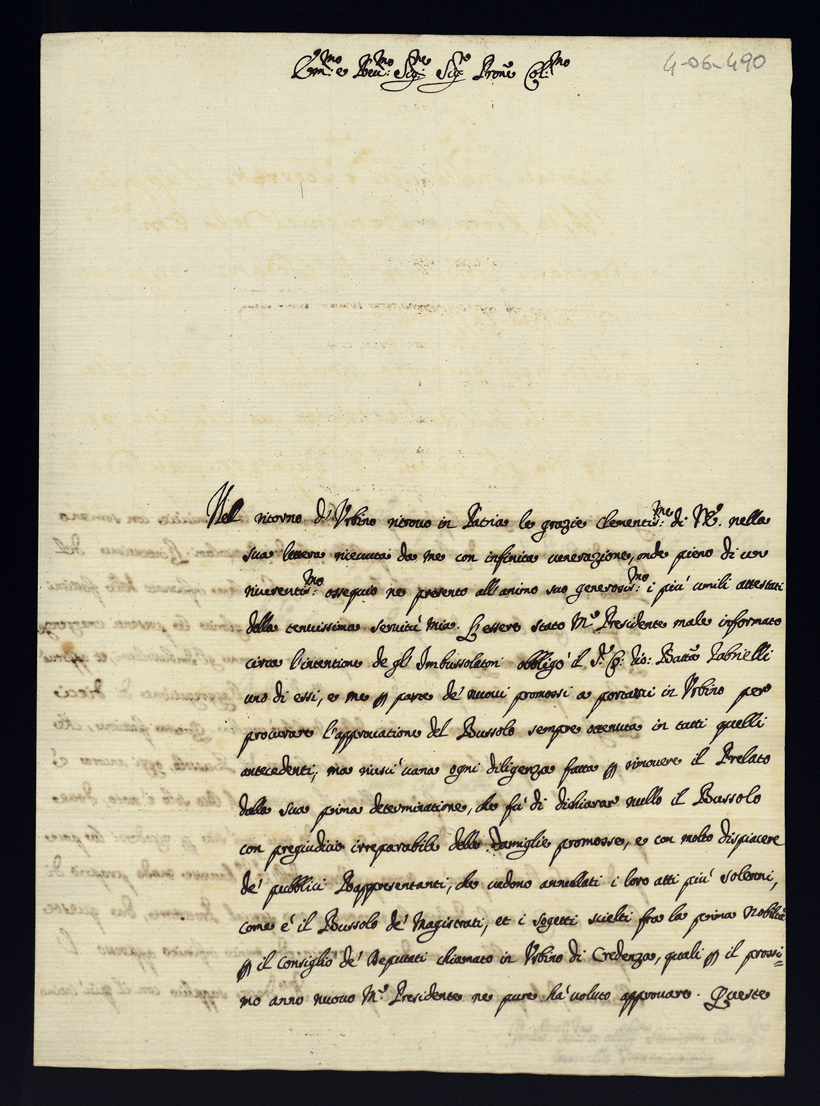 4-06-490
Em:mo e Reu:mo Sig:re Sig:re Prone Col:mo
Nel ritorno d'Vrbino ritrouo in Patria le grazie Clementis:me di V.E. nella
sua lettera riceuuta da me con infinita uenerazione, onde pieno di un
riuerentis:mo ossequio ne presento all'animo suo generosis:mo i piu' umili attestati
della tenuissima seruitù mia. L'essere stato M.r Presidente male informato
circa l'intentione de gl'Imbussolatori obbligò il Sig: Gio: Batta Gabrielli
uno di essi, e me p parte de' nuoui promossi a portarci in Vrbino per
procurare l'approuatione del Bussolo sempre ottenuta in tutti quelli
antecedenti, ma riusci' uana ogni diligenza fatta p rimouere il Prelato
dalla sua prima determinatione, che fu' di dichiarar nullo il Bussolo
con pregiudicio irreparabile delle famiglie promosse, e con molto dispiacere
de' pubblici Rappresentanti, che uedono annullati i loro atti piu' solenni,
come e' il Bussolo de' Magistrati, et i sogetti scielti fra la prima nobiltà
p il Consiglio de' Deputati chiamato in Vrbino di Credenza, quali p il prossi=
mo anno nuouo M.r Presidente ne pure ha' uoluto approuare. Queste